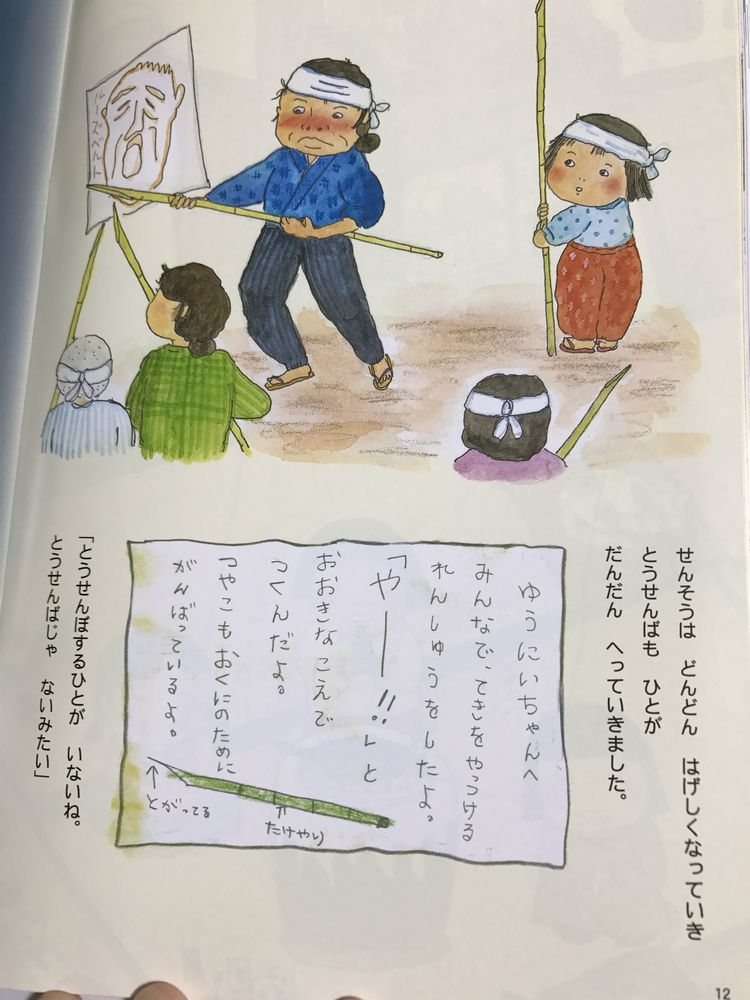 ルーズベルト
せんそうは どんどん はげしくなっていき
とうせんばも ひとが
だんだん へっていきました。
ゆうにいちゃんへ
みんなで、てきをやっつける
れんしゅうをしたよ。
「やー!!」と
おおきなこえで
つくんだよ。
つやこもおくにのために
がんばっているよ。
↑とがってる
↑たけやり
「とうせんぼするひとが いないね。
とうせんばじゃ ないみたい」
12